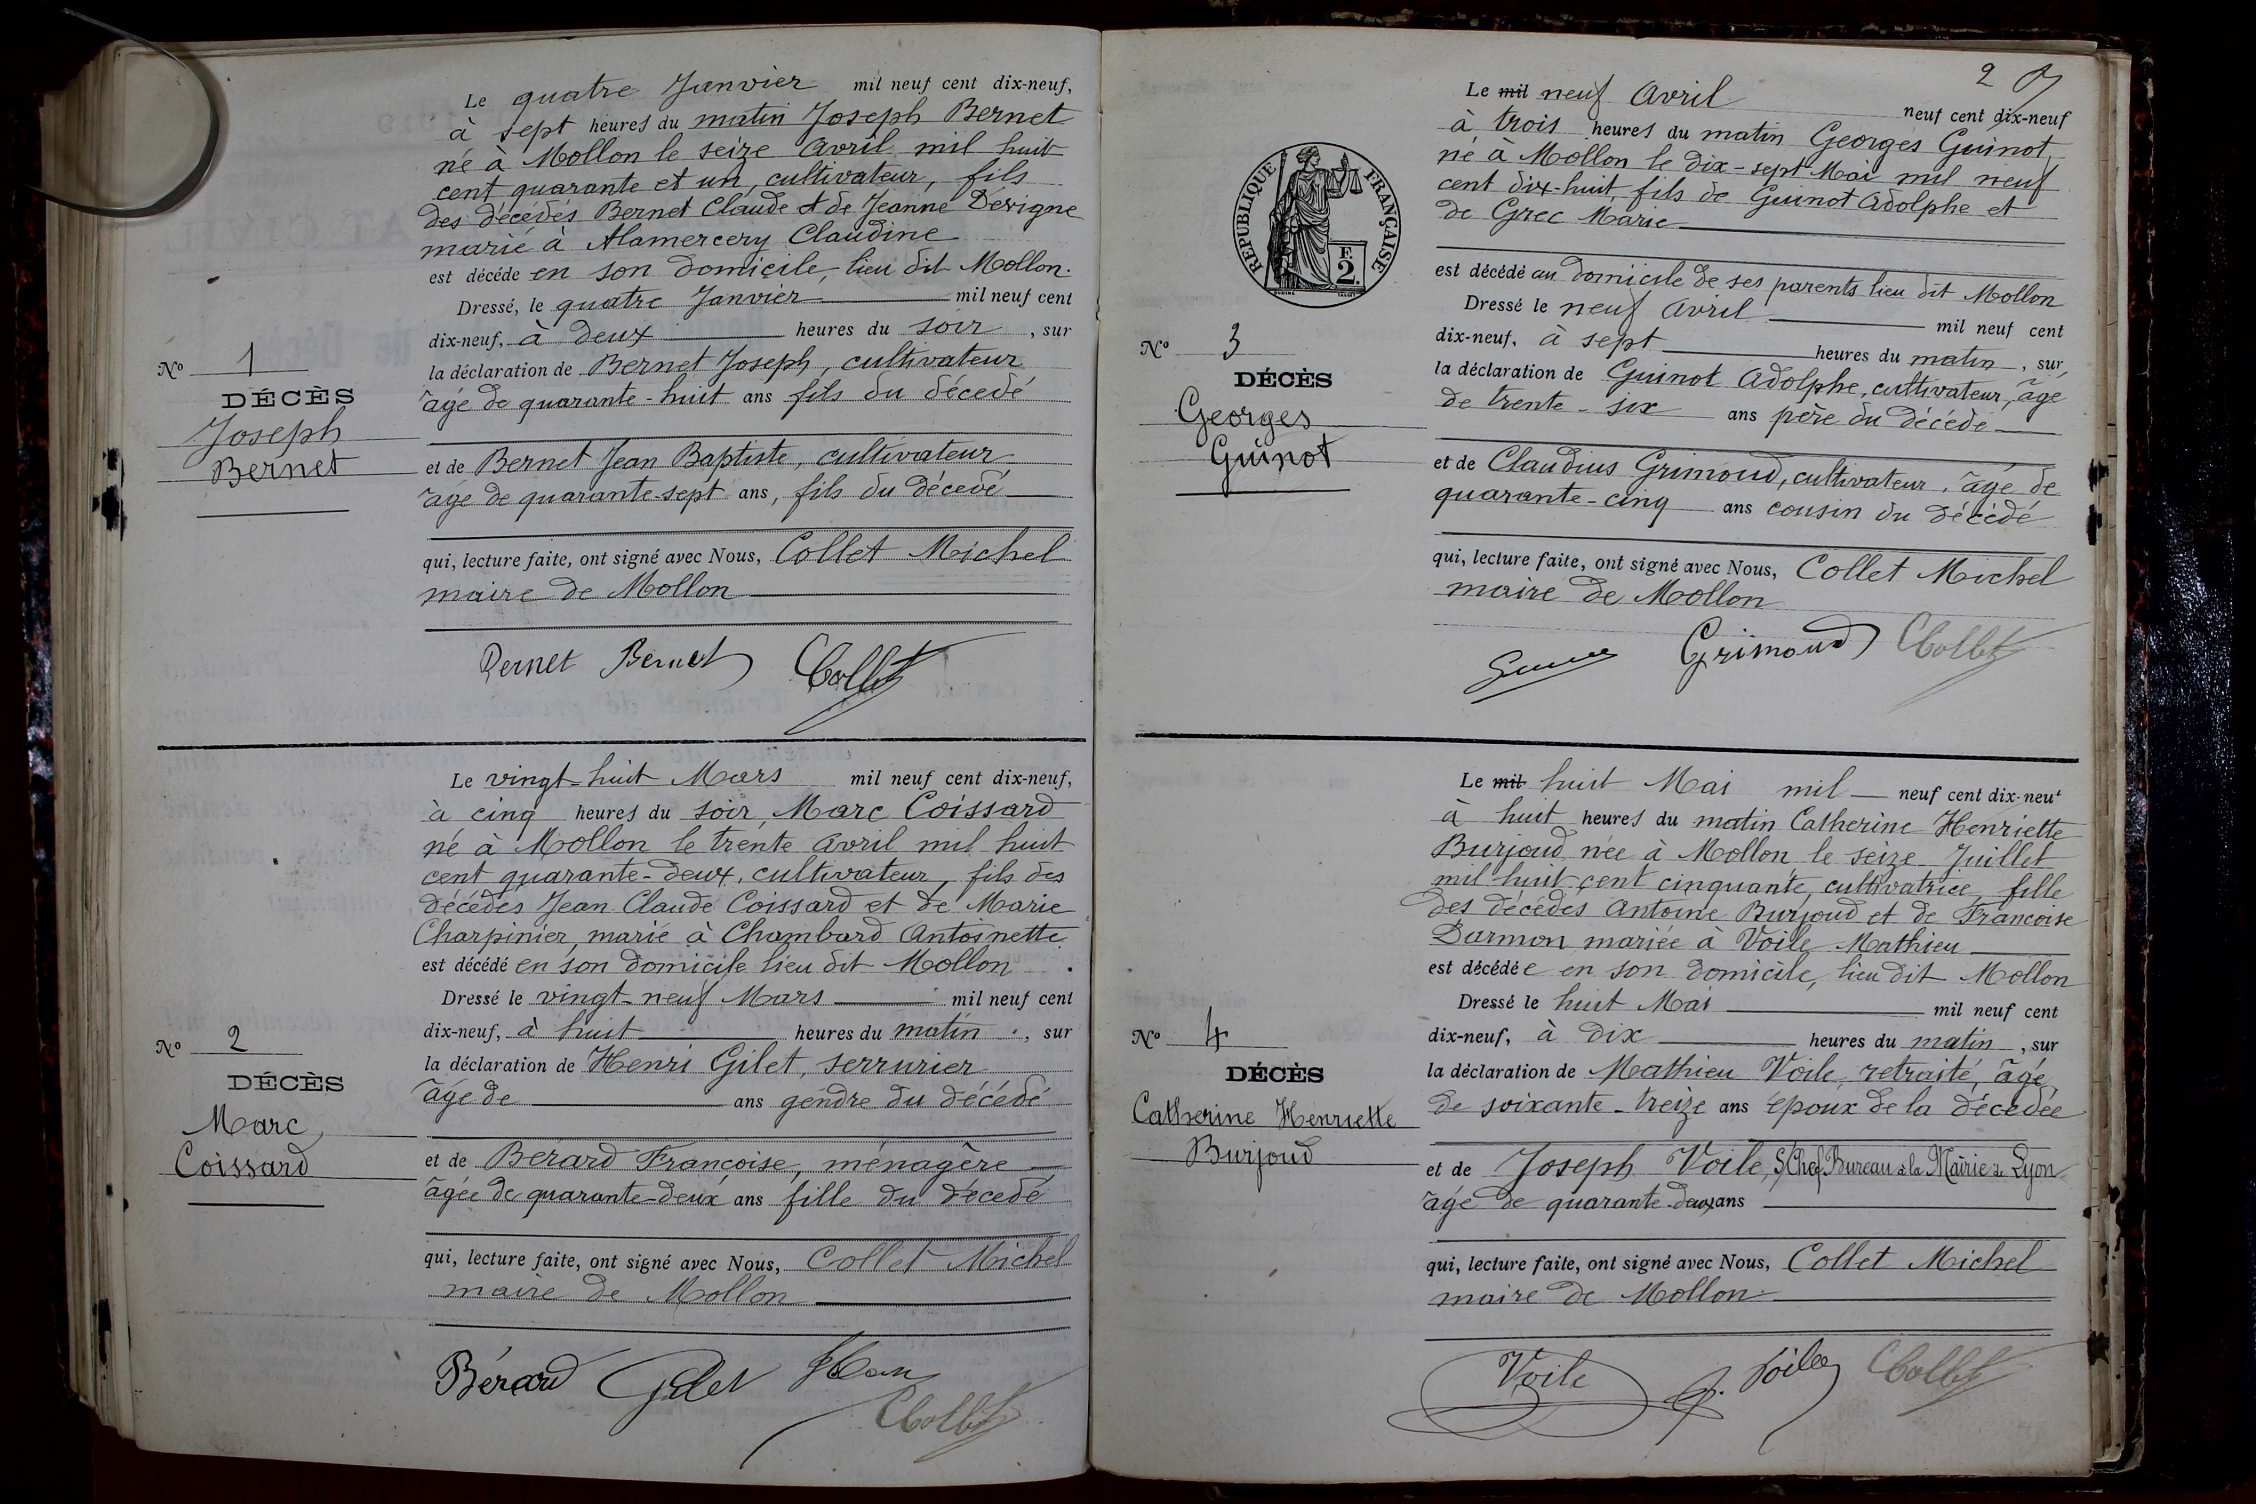 Le quatre Janvier mil neuf cent dix-neuf,
à sept heures du matin Joseph Bernet
né à Mollon le seize Avril mil huit
cent quarante et un, cultivateur, fils
des décédés Bernet Claude et de Jeanne Dévigne
marié à Alamercery Claudine
est décédé en son domicile, lieu dit Mollon.
Dressé, le quatre Janvier mil neuf cent
dix-neuf, à deux heures du soir, sur
la déclaration de Bernet Joseph, cultivateur
âgé de quarante-huit ans fils du décedé
et de Bernet Jean Baptiste, cultivateur
âgé de quarante-sept ans, fils du décedé
qui, lecture faite, ont signé avec Nous, Collet Michel
maire de Mollon
Bernet Bernet Collet
No 1
DÉCÈS
Joseph
Bernet
Le vingt-huit Mars mil neuf cent dix-neuf,
à cinq heures du soir, Marc Coissard
né à Mollon le trente Avril mil huit
cent quarante-deux, cultivateur, fils des
décédés Jean Claude Coissard et de Marie
Charpinier, marié à Chambard Antoinette
est décédé en son domicile lieu dit Mollon.
Dressé le vingt-neuf Mars mil neuf cent
dix-neuf, à huit heures du matin, sur
la déclaration de Henri Gilet, serrurier
âgé de ans gendre du décédé
et de Bérard Françoise, ménagère
âgée de quarante-deux ans fille du décedé
qui, lecture faite, ont signé avec Nous, Collet Michel
maire de Mollon
Bérard Gilet
Collet
No 2
DÉCÈS
Marc
Coissard
2
Le mil neuf Avril neuf cent dix-neuf
à trois heures du matin Georges Guinot
né à Mollon le dix-sept Mai mil neuf
cent dix-huit, fils de Guinot Adolphe et
de Grec Marie
est décédé au domicile de ses parents lieu dit Mollon
Dressé le neuf Avril mil neuf cent
dix-neuf, à sept heures du matin, sur
la déclaration de Guinot Adolphe, cultivateur, âgé
de trente-six ans père du décédé
et de Claudius Grimoud, cultivateur, âgé de
quarante-cinq ans cousin du décédé
qui, lecture faite, ont signé avec Nous, Collet Michel
maire de Mollon
Grimoud Collet
RÉPUBLIQUE FRANÇAISE
F.
2.
No 3
DÉCÈS
Georges
Guinot
Le mil huit Mai mil neuf cent dix-neuf
à huit heures du matin Catherine Henriette
Burjoud née à Mollon le seize Juillet
mil huit cent cinquante, cultivatrice, fille
des décédés Antoine Burjoud et de Françoise
Darmon mariée à Voile Mathieu
est décédée en son domicile, lieu dit Mollon
Dressé le huit Mai mil neuf cent
dix-neuf, à dix heures du matin, sur
la déclaration de Mathieu Voile, retraité, âgé
de soixante-treize ans époux de la décédée
et de Joseph Voile, S/Chef Bureau à la Mairie de Lyon
âgé de quarante-deux ans
qui, lecture faite, ont signé avec Nous, Collet Michel
maire de Mollon
Voile J. Voile Collet
No 4
DÉCÈS
Catherine Henriette
Burjoud